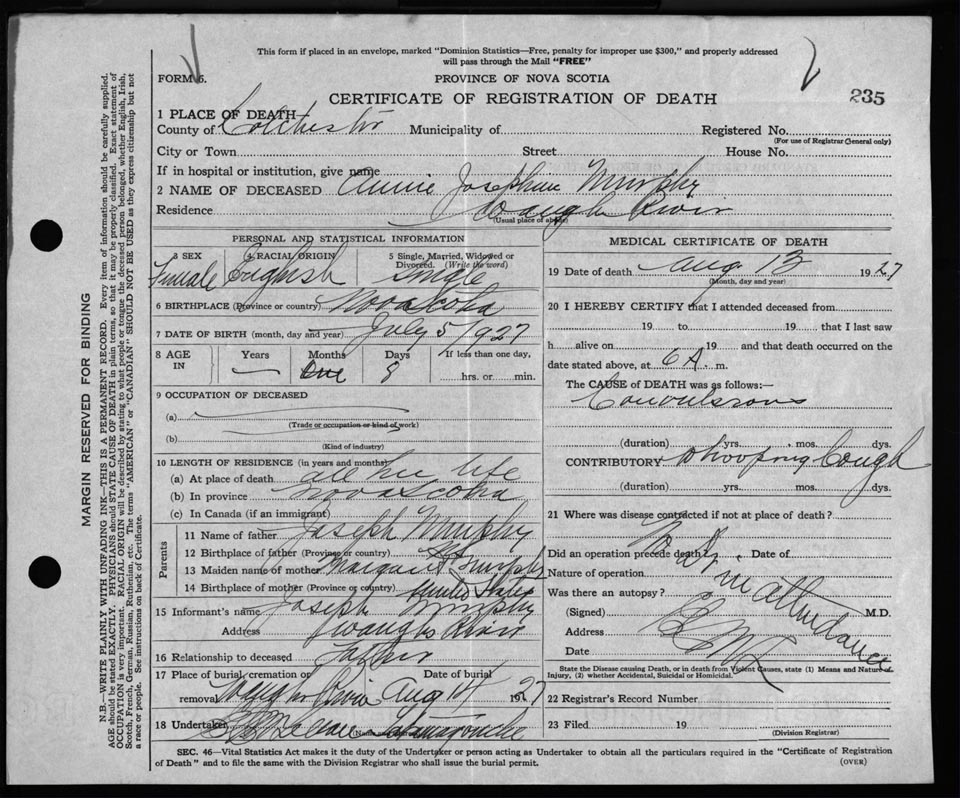 This form if placed in an envelope, marked "Dominion Statistics—Free, penalty for improper use $300," and properly addressed
will pass through the Mail "FREE"
FORM 6.
PROVINCE OF NOVA SCOTIA
CERTIFICATE OF REGISTRATION OF DEATH
235
1 PLACE OF DEATH
County of Colchester Municipality of Registered No.
(For use of Registrar General only)
City or Town Street House No.
If in hospital or institution, give name
2 NAME OF DECEASED Annie Josephine Murphy
Residence Waugh River
(Usual place of abode)
PERSONAL AND STATISTICAL INFORMATION
3 SEX 4 RACIAL ORIGIN 5 Single, Married, Widowed or
Divorced. (Write the word)
Female English Single
6 BIRTHPLACE (Province or country) Nova Scotia
7 DATE OF BIRTH (month, day and year) July 5 1927
8 AGE IN Years Months Days If less than one day,
— One 8 hrs. or min.
9 OCCUPATION OF DECEASED
(a)
(Trade or occupation or kind of work)
(b)
(Kind of industry)
10 LENGTH OF RESIDENCE (in years and months)
(a) At place of death all her life
(b) In province Nova Scotia
(c) In Canada (if an immigrant)
Parents
11 Name of father Joseph Murphy
12 Birthplace of father (Province or country)
13 Maiden name of mother Margaret Murphy
14 Birthplace of mother United States
15 Informant's name Joseph Murphy
Address Waughs River
16 Relationship to deceased Father
17 Place of burial, cremation or Date of burial
removal Waughs River Aug 14 1927
18 Undertaker
MEDICAL CERTIFICATE OF DEATH
19 Date of death Aug 13 1927
(Month, day and year)
20 I HEREBY CERTIFY that I attended deceased from
19 to 19 that I last saw
h alive on 19 and that death occurred on the
date stated above, at 6 A. m.
The CAUSE of DEATH was as follows:—
Convulsions
(duration) yrs. mos. dys.
CONTRIBUTORY Whooping Cough
(duration) yrs. mos. dys.
21 Where was disease contracted if not at place of death?
Did an operation precede death? Date of
Nature of operation
Was there an autopsy?
No Dr in attendance
(Signed) M.D.
Address
Date
State the Disease causing Death, or in death from Violent Causes, state (1) Means and Nature of
Injury, (2) whether Accidental, Suicidal or Homicidal.
22 Registrar's Record Number
23 Filed 19
(Division Registrar)
SEC. 46—Vital Statistics Act makes it the duty of the Undertaker or person acting as Undertaker to obtain all the particulars required in the "Certificate of Registration
of Death" and to file the same with the Division Registrar who shall issue the burial permit.
(OVER)
MARGIN RESERVED FOR BINDING
N.B.—WRITE PLAINLY WITH UNFADING INK—THIS IS A PERMANENT RECORD. Every item of information should be carefully supplied.
AGE should be stated EXACTLY. PHYSICIANS should STATE CAUSE OF DEATH in plain terms, so that it may be properly classified. Exact statement of
OCCUPATION is very important. RACIAL ORIGIN will be described by stating to what people or tongue the deceased person belonged, whether English, Irish,
Scotch, French, German, Russian, Ruthenian, etc. The terms "AMERICAN" or "CANADIAN" SHOULD NOT BE USED as they express citizenship but not
a race or people. See instructions on back of Certificate.